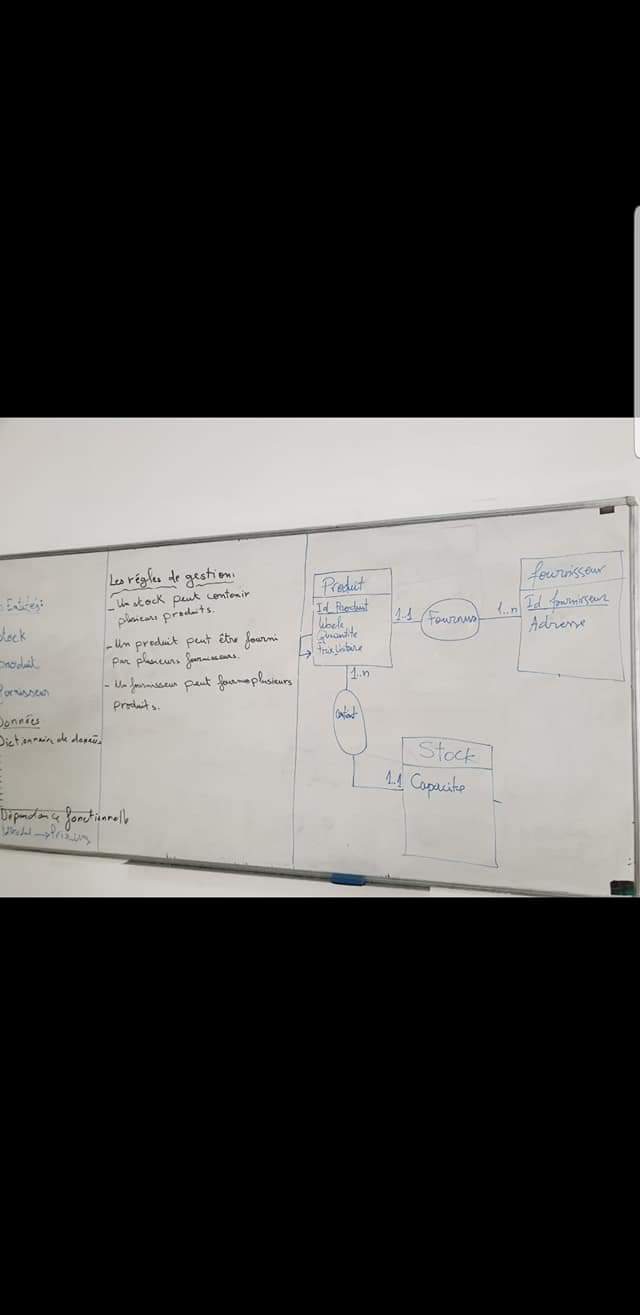 Entités:
tock
produit
fornisseur
Données
Dictionnaire de données
Dépendance fonctionnelle
Les régles de gestion:
- Un stock peut contenir
plusieurs produits.
- Un produit peut être fourni
par plusieurs fournisseurs.
- Un fournisseur peut plusieurs
produits.
Produit
Id Produit
Quantite
1.1
1..n
fournisseur
Id fournisseur
Adresse
1..n
Stock
1.1
Capacite